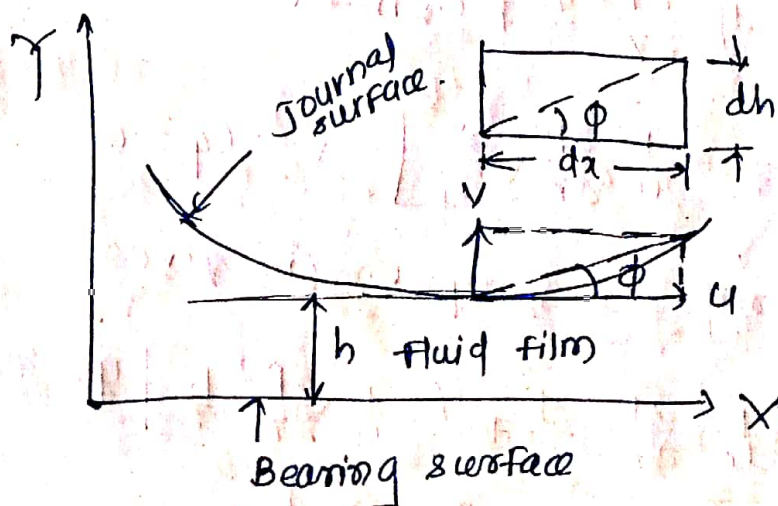 Y
Journal
surface.
dh
φ
dx
V
φ
u
h fluid film
X
Bearing surface